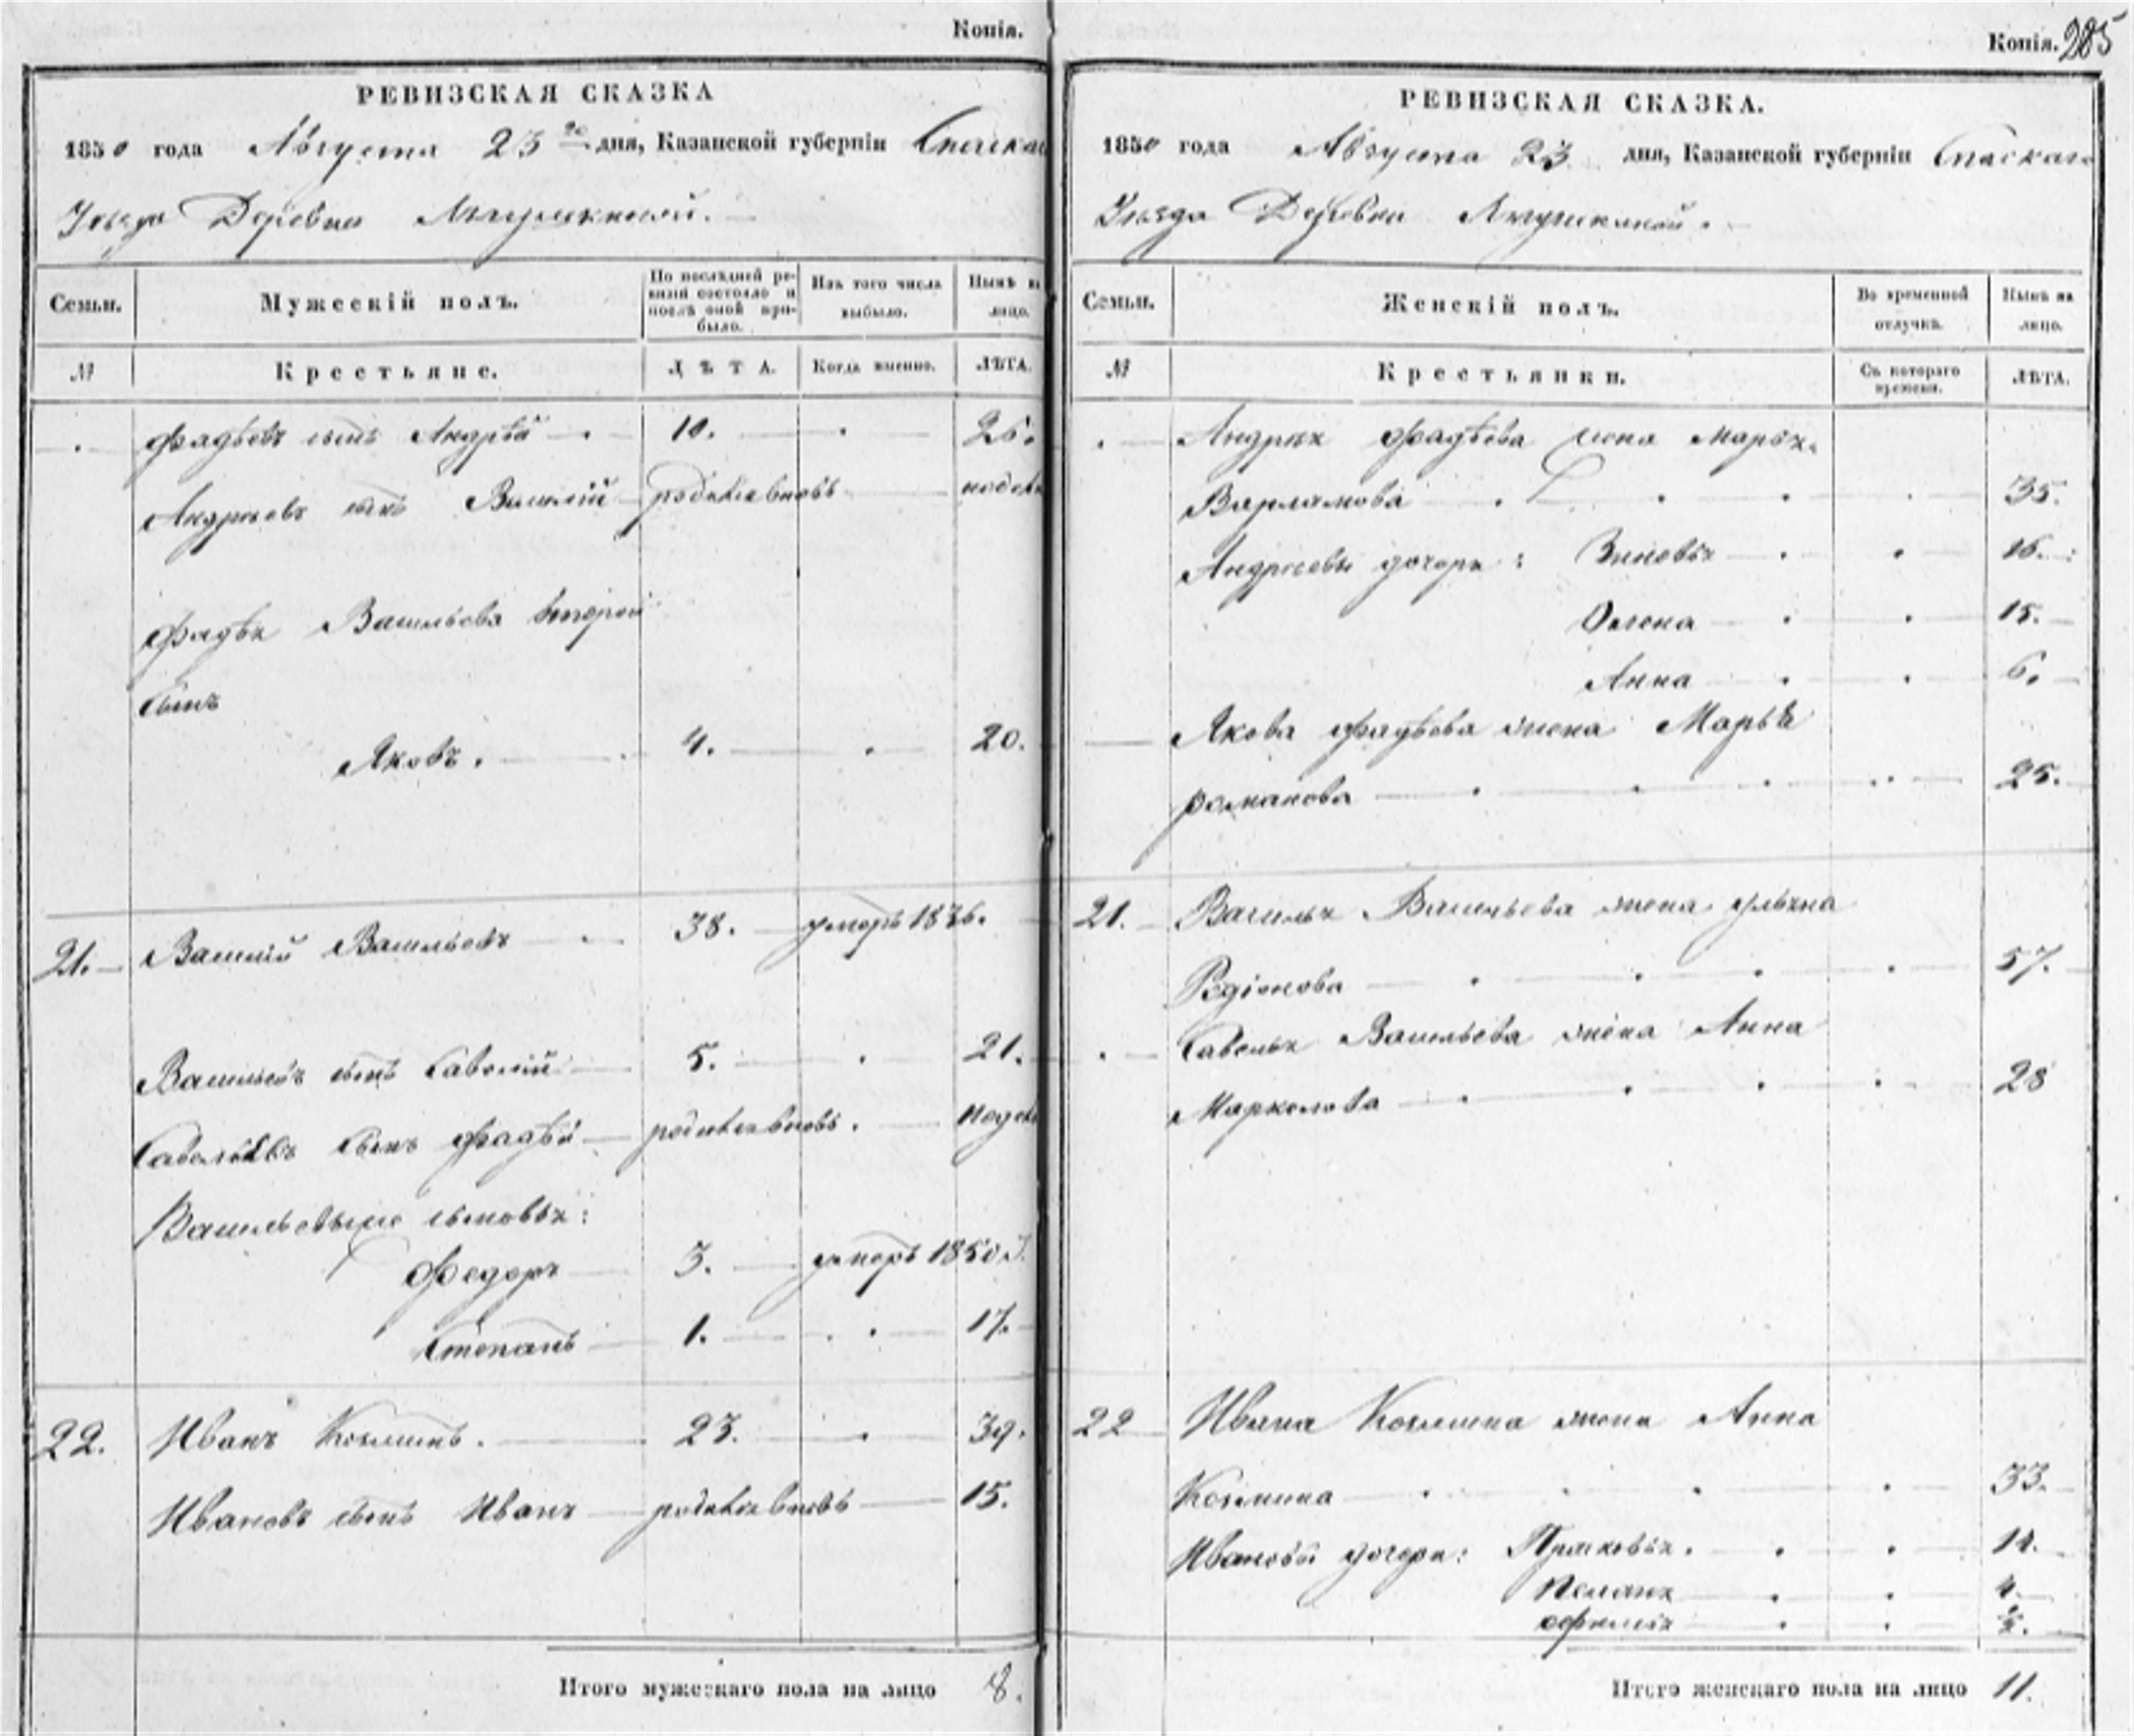 Копія.
РЕВИЗСКАЯ СКАЗКА
1850 года Августа 23го дня, Казанской губерніи
Уѣзда Деревни
Семьи.
Мужескій полъ.
По послѣдней ре-
визіи состояло и
послѣ оной при-
было.
Изъ того числа
выбыло.
Нынѣ на
лицо.
№
Крестьяне.
ЛѢТА.
Когда именно.
ЛѢТА.
Фадѣевъ сынъ Андрей 10. 26.
Андреевъ сынъ Василій родился вновѣ
Фадѣя Васильева второй
сынъ
Яковъ. 4. 20.
21. Василій Васильевъ 38. умеръ 1836.
Васильевъ сынъ Савелій 5. 21.
Савельевъ сынъ Фадѣй родился вновѣ.
Васильевы сыновья:
Федоръ 3. умеръ 1850
Степанъ 1. 17.
22. Иванъ Козминъ. 23. 39.
Ивановъ сынъ Иванъ родился вновѣ 15.
Итого мужескаго пола на лицо 8.
Копія. 285
РЕВИЗСКАЯ СКАЗКА.
1850 года Августа 23 дня, Казанской губерніи Спаскаго
Уѣзда Деревни
Семьи.
Женскій полъ.
Во временной
отлучкѣ.
Нынѣ на
лицо.
№
Крестьянки.
Съ котораго
времени.
ЛѢТА.
Андрея Фадѣева жена Марья
Варламова 35.
Андреевы дочери: Зиновья 16.
Олена 15.
Анна 6.
Якова Фадѣева жена Марья
Романова 25.
21. Василья Васильева жена Ульяна
Родіонова 57.
Савелья Васильева жена Анна
Маркелова 28
22 Ивана Козмина жена Анна
Козмина 33.
Ивановы дочери: Прасковья. 14.
Пелагея 4.
Афимья
Итого женскаго пола на лицо 11.